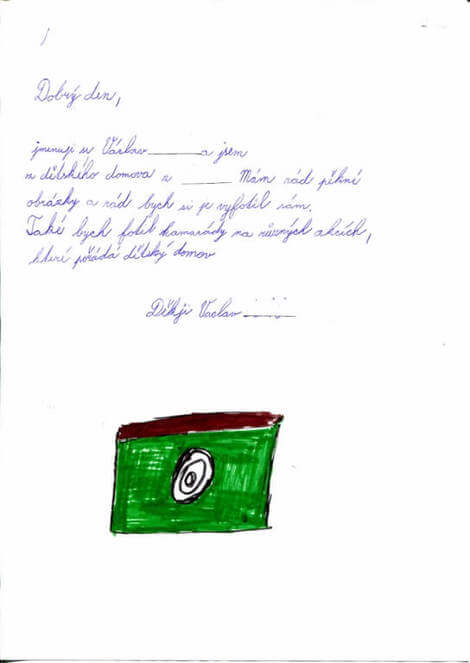 Dobrý den,
jmenuji se Václav ______ a jsem
z dětského domova z ______ Mám rád pěkné
obrázky a rád bych si je vyfotil sám.
Také bych fotil kamarády na různých akcích,
které pořádá dětský domov
Děkuji Vaclav ______